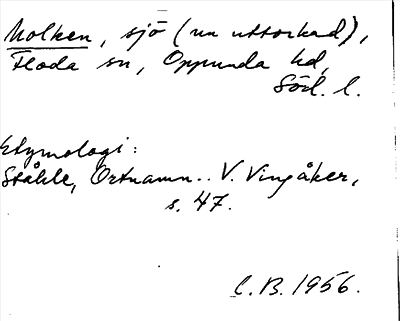 Molken, sjö (nu uttorkad),
Floda sn, Oppunda hd,
Södl. l.
Etymologi:
Ståhle, Ortnamn.. V. Vingåker,
s. 47.
C.B. 1956.